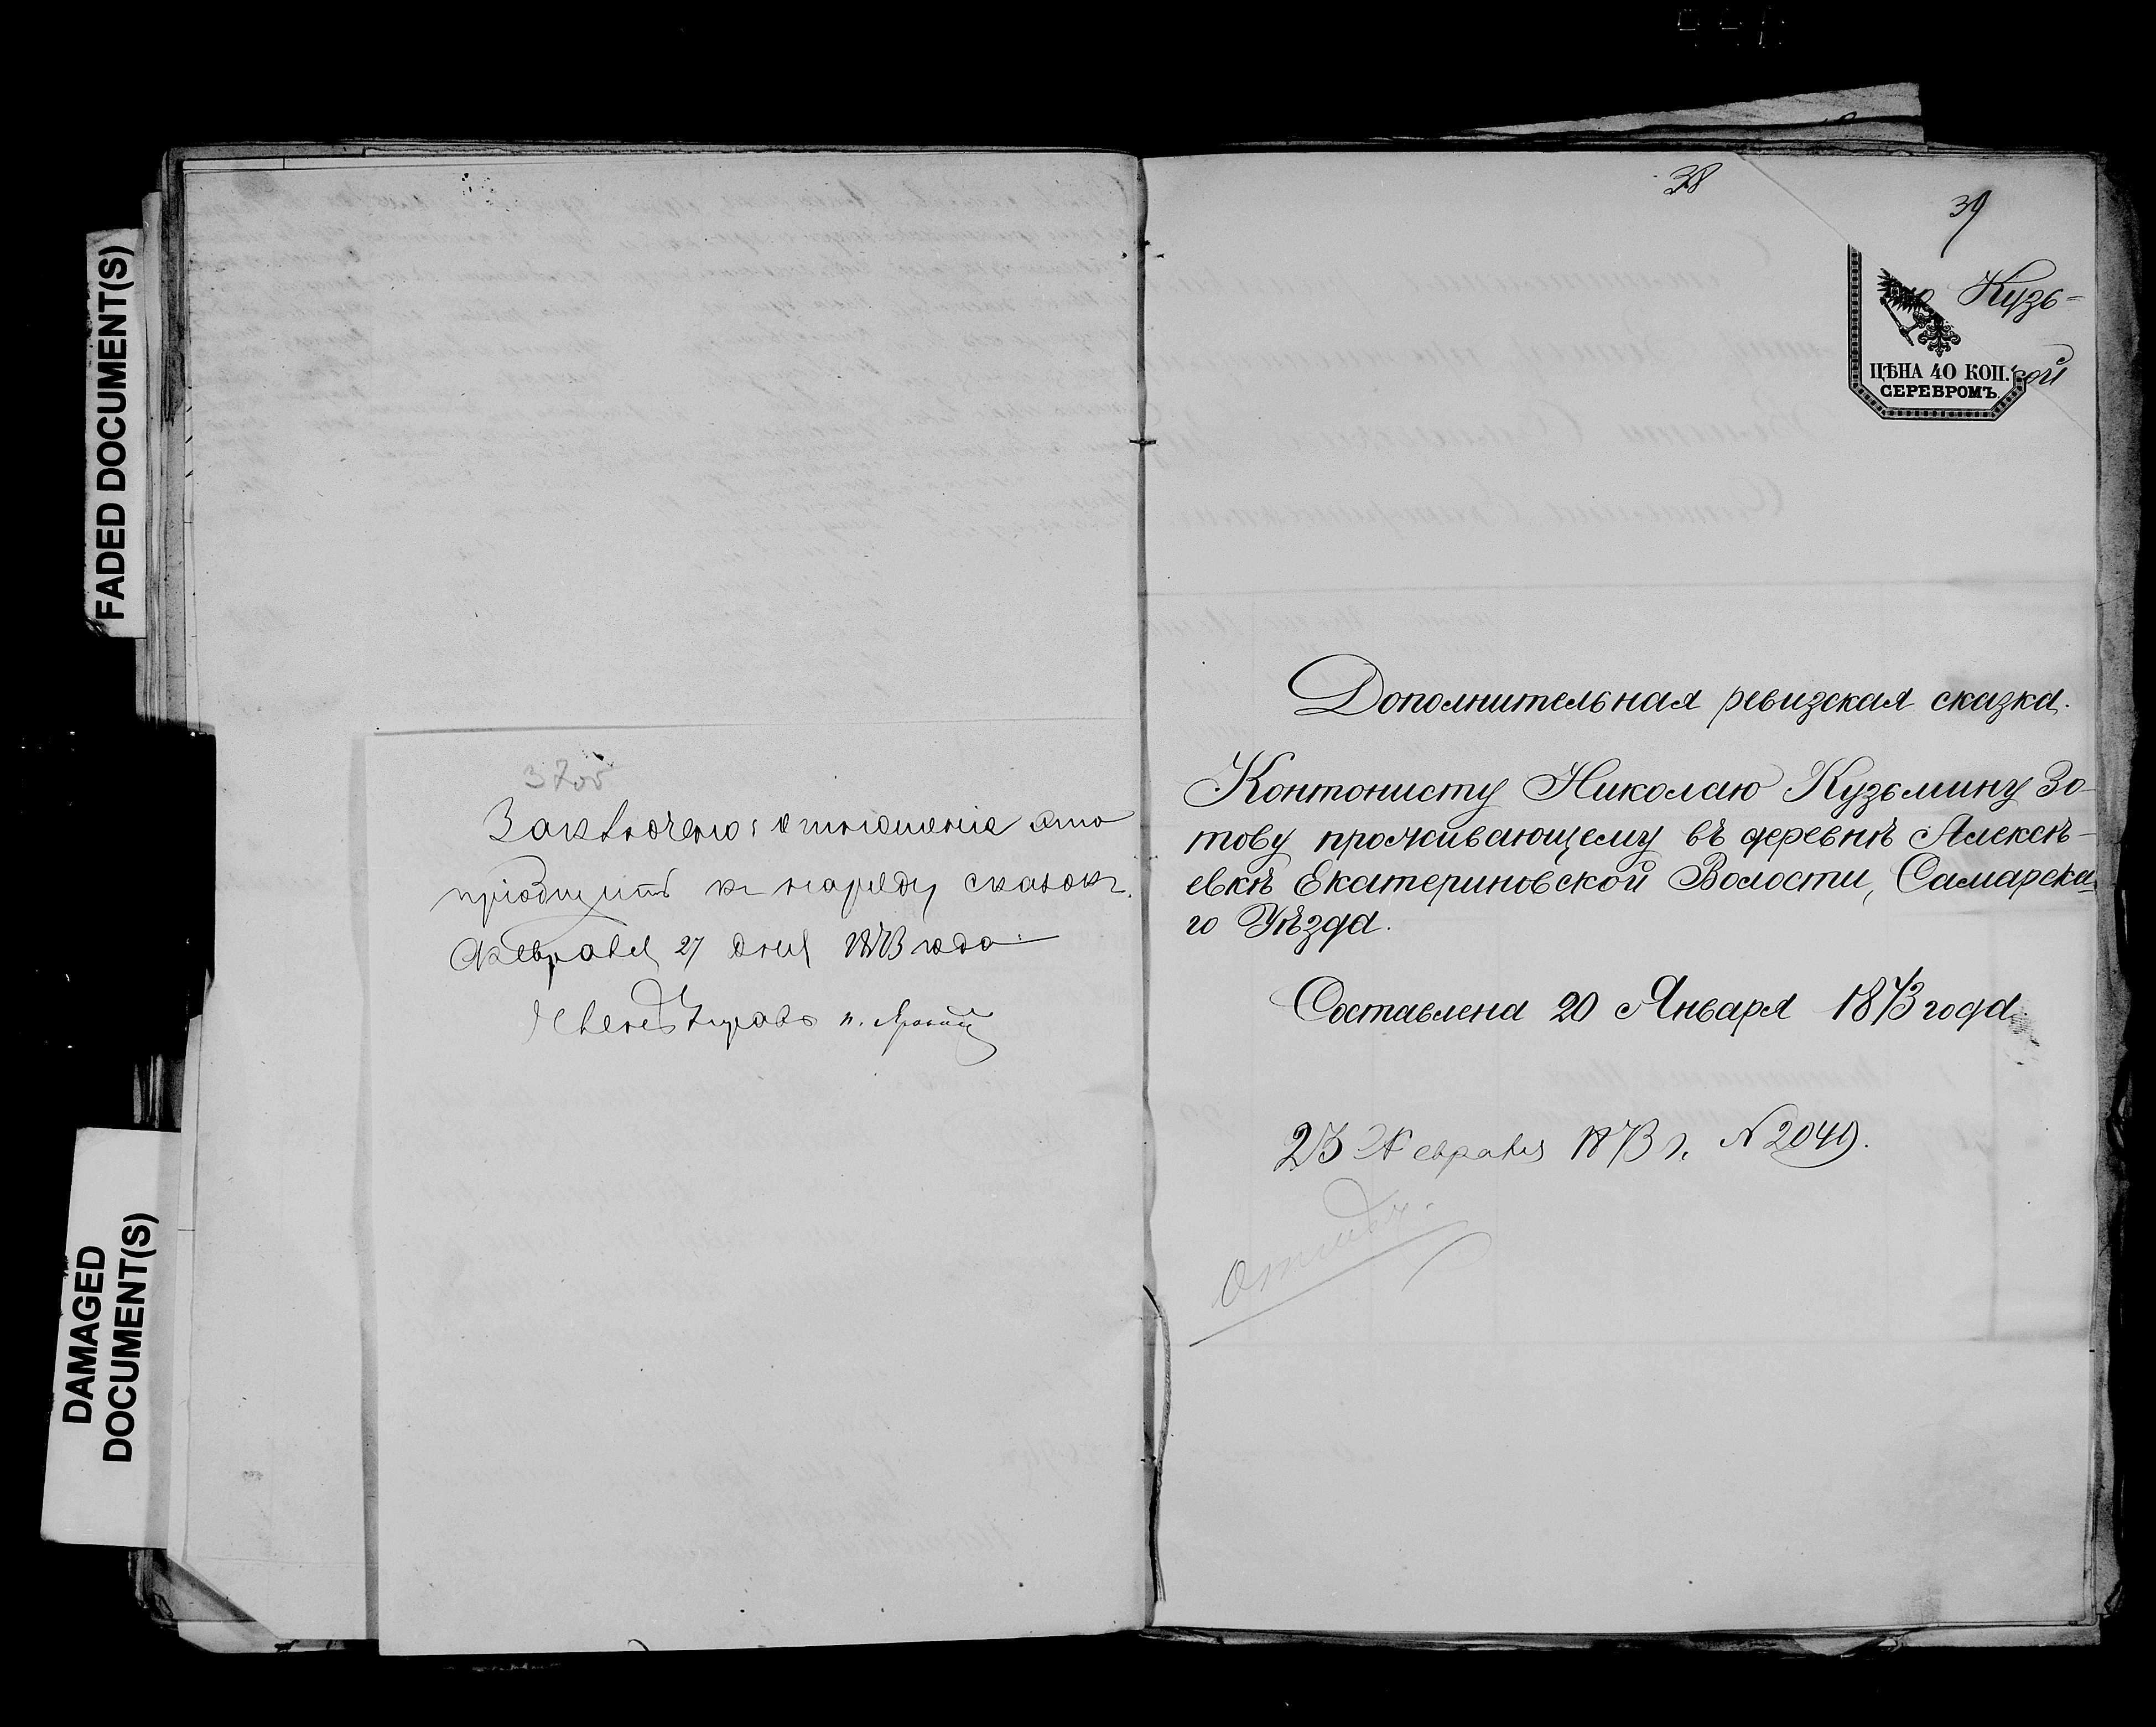 FADED DOCUMENT(S)
DAMAGED
DOCUMENT(S)
37об
Заключено: отношение это
приобщить къ наряду сказокъ.
Февраля 27 дня 1873 года
38
39
Кузь=
ЦѢНА 40 КОП.
СЕРЕБРОМЪ.
кой
Дополнительная ревизская сказка.
Контонисту Николаю Кузьмину Зо-
тову проживающему въ деревнѣ Алексѣ-
евкѣ Екатериновской Волости, Самарска-
го Уѣзда.
Составлена 20 Января 1873 года.
23 Февраля 1873 г. № 2049.